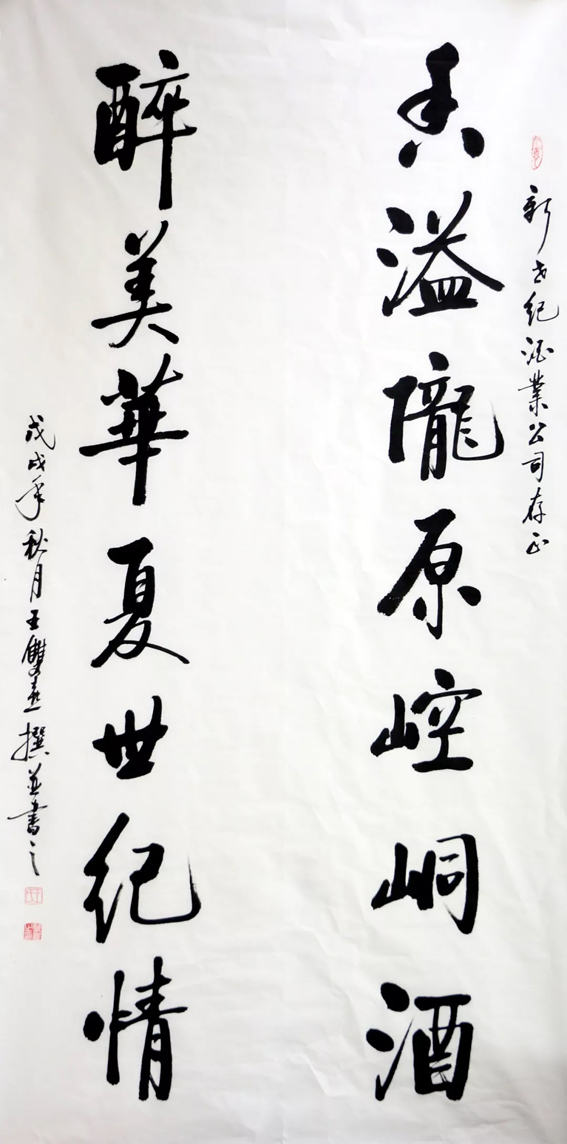 新世紀酒業公司存正
香溢隴原崆峒酒
醉美華夏世紀情
戊戌年秋月王雙喜撰並書之